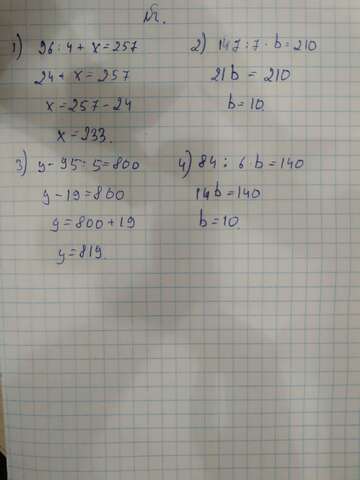 №.
1) 96 : 4 + x = 257
24 + x = 257
x = 257 - 24
x = 233.
2) 147 : 7 · b = 210
21b = 210
b = 10.
3) y - 95 : 5 = 800
y - 19 = 800
y = 800 + 19
y = 819.
4) 84 : 6 · b = 140
14b = 140
b = 10.